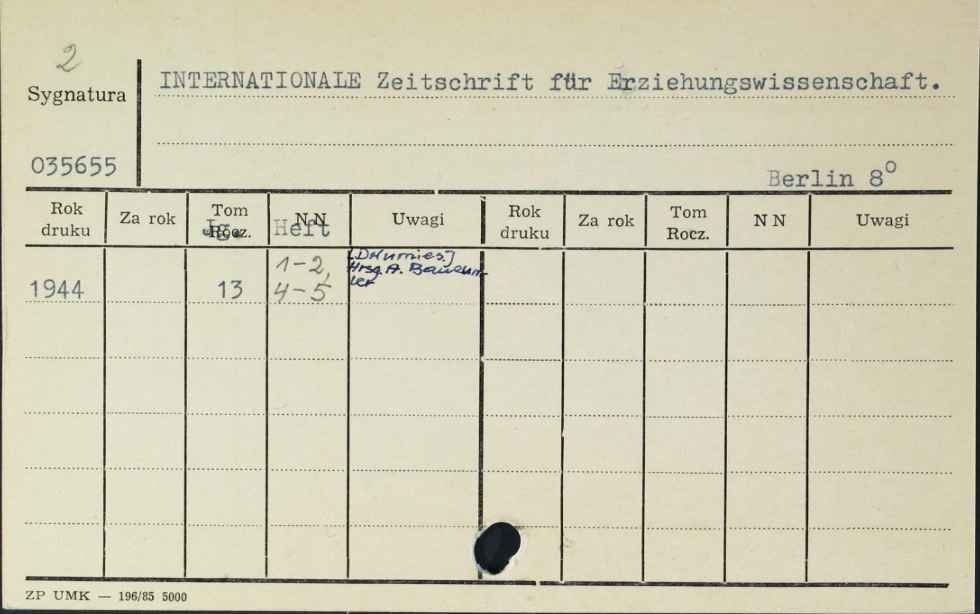 2
Sygnatura
INTERNATIONALE Zeitschrift für Erziehungswissenschaft.
035655
Berlin 8⁰
Rok druku Za rok Tom Rocz. Jg. N N Heft Uwagi Rok druku Za rok Tom Rocz. N N Uwagi
1944 13 1-2, 4-5
Hrsg. A. Baeum-
ler
ZP UMK — 196/85 5000